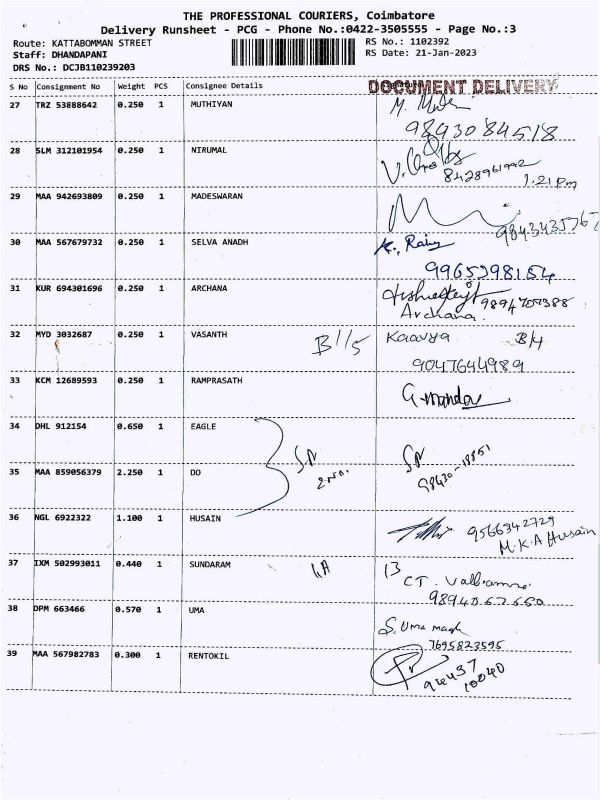 THE PROFESSIONAL COURIERS, Coimbatore
Delivery Runsheet - PCG - Phone No.:0422-3505555 - Page No.:3
Route: KATTABOMMAN STREET RS No.: 1102392
Staff: DHANDAPANI RS Date: 21-Jan-2023
DRS No.: DCJB110239203
S No Consignment No Weight PCS Consignee Details DOCUMENT DELIVERY
27 TRZ 53888642 0.250 1 MUTHIYAN M.
9843084518
28 SLM 312101954 0.250 1 NIRUMAL
8428961992
1.21 Pm
29 MAA 942693809 0.250 1 MADESWARAN
30 MAA 567679732 0.250 1 SELVA ANADH
9965398154
31 KUR 694301696 0.250 1 ARCHANA
Archana.
32 MYD 3032687 0.250 1 VASANTH B11/5 Kaavya B/4
9047644989
33 KCM 12689593 0.250 1 RAMPRASATH
34 DHL 912154 0.650 1 EAGLE
35 MAA 859056379 2.250 1 DO
36 NGL 6922322 1.100 1 HUSAIN 9566342729
M.K.A Husain
37 IXM 502993011 0.440 1 SUNDARAM 13
CT.
38 DPM 663466 0.570 1 UMA S. Uma
7695823595
39 MAA 567982783 0.300 1 RENTOKIL
94437
10040